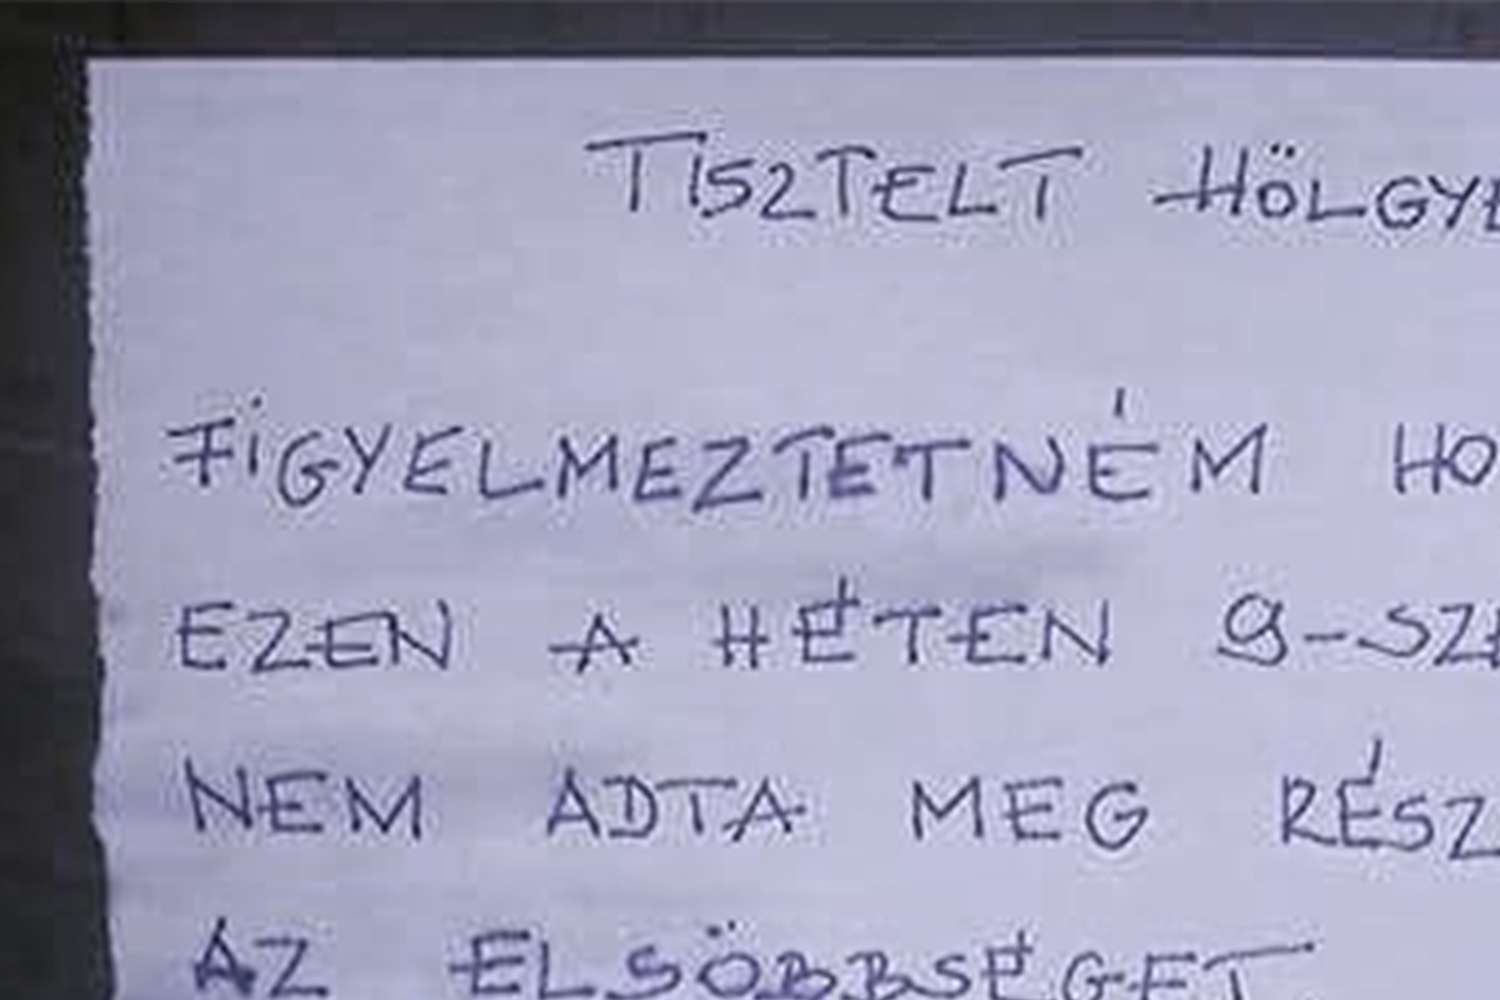 TISZTELT HÖLGYE
FIGYELMEZTETNÉM HO
EZEN A HÉTEN 9-SZE
NEM ADTA MEG RÉSZ
AZ ELSÖBBSÉGET